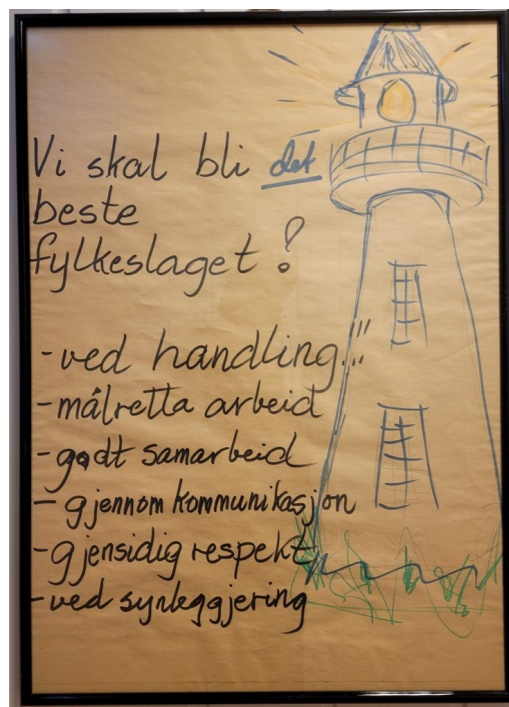 Vi skal bli det
beste
fylkeslaget?
-ved handling...
-målretta arbeid
-godt samarbeid
-gjennom kommunikasjon
-gjensidig respekt
-ved synleggjering